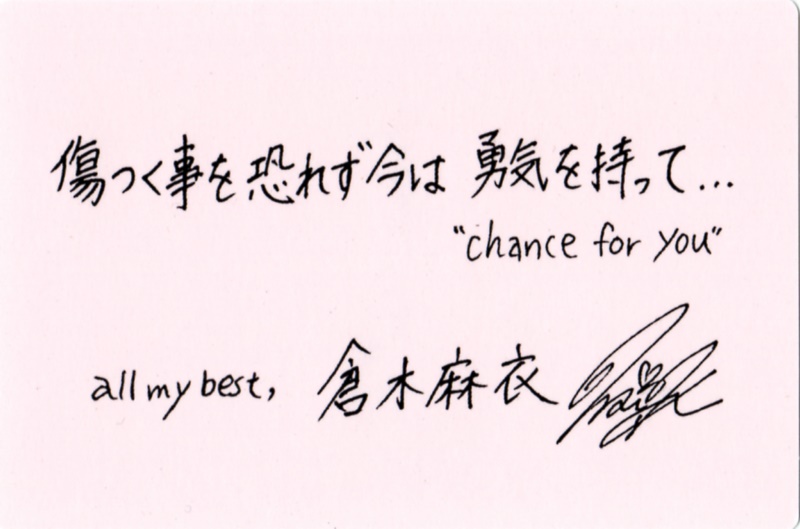 傷つく事を恐れず今は 勇気を持って...
"chance for you"
all my best, 倉木麻衣